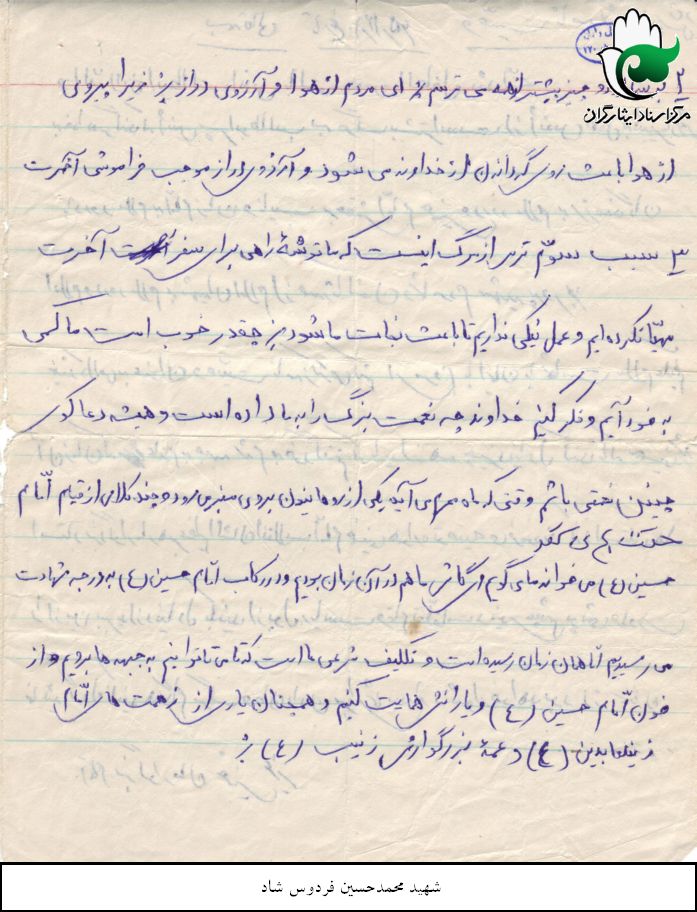 مرکز اسناد ایثارگران
۲ چیز بیشتر از همه می ترسم برای مردم از هوا و آرزوی دراز پز زیرا پیروی
از هوا باعث روی گردانیدن از خداوند می شود و آرزوی دراز موجب فراموشی آخرت
۳ سبب سوّم ترس از مرگ اینست که ما توشهٔ راهی برای سفر آخرت
مهیّا نکرده ایم و عمل نیکی نداریم تا باعث نجات ما شود پز چقدر خوب است ما کمی
به خود آیم و فکر کنیم خداوند چه نعمت بزرگ را به ما داده است و همیشه دعا گوی
چنین نعمتی باشم وقتی که ماه محرم می آید یکی از روحانیون بروی منبر می رود و چند کلامی از قیام امّام
صحبت می کند
حسین (ع) می خواند ما می گویم ای کاش ما هم در آن زمان بودیم و در رکاب امّام حسین (ع) به درجه شهادت
می رسیدیم امّا همان زمان رسیده است و تکلیف شرعی ما است که تا می توانیم به جبهه ها برویم و از
خون امّام حسین (ع) و یارانش حمایت کنیم و همچنان یاری از زحمت های امّام
زینلعابدین (ع) و عمهٔ بزرگوارش زینب (ع)
شهید محمدحسین فردوس شاد